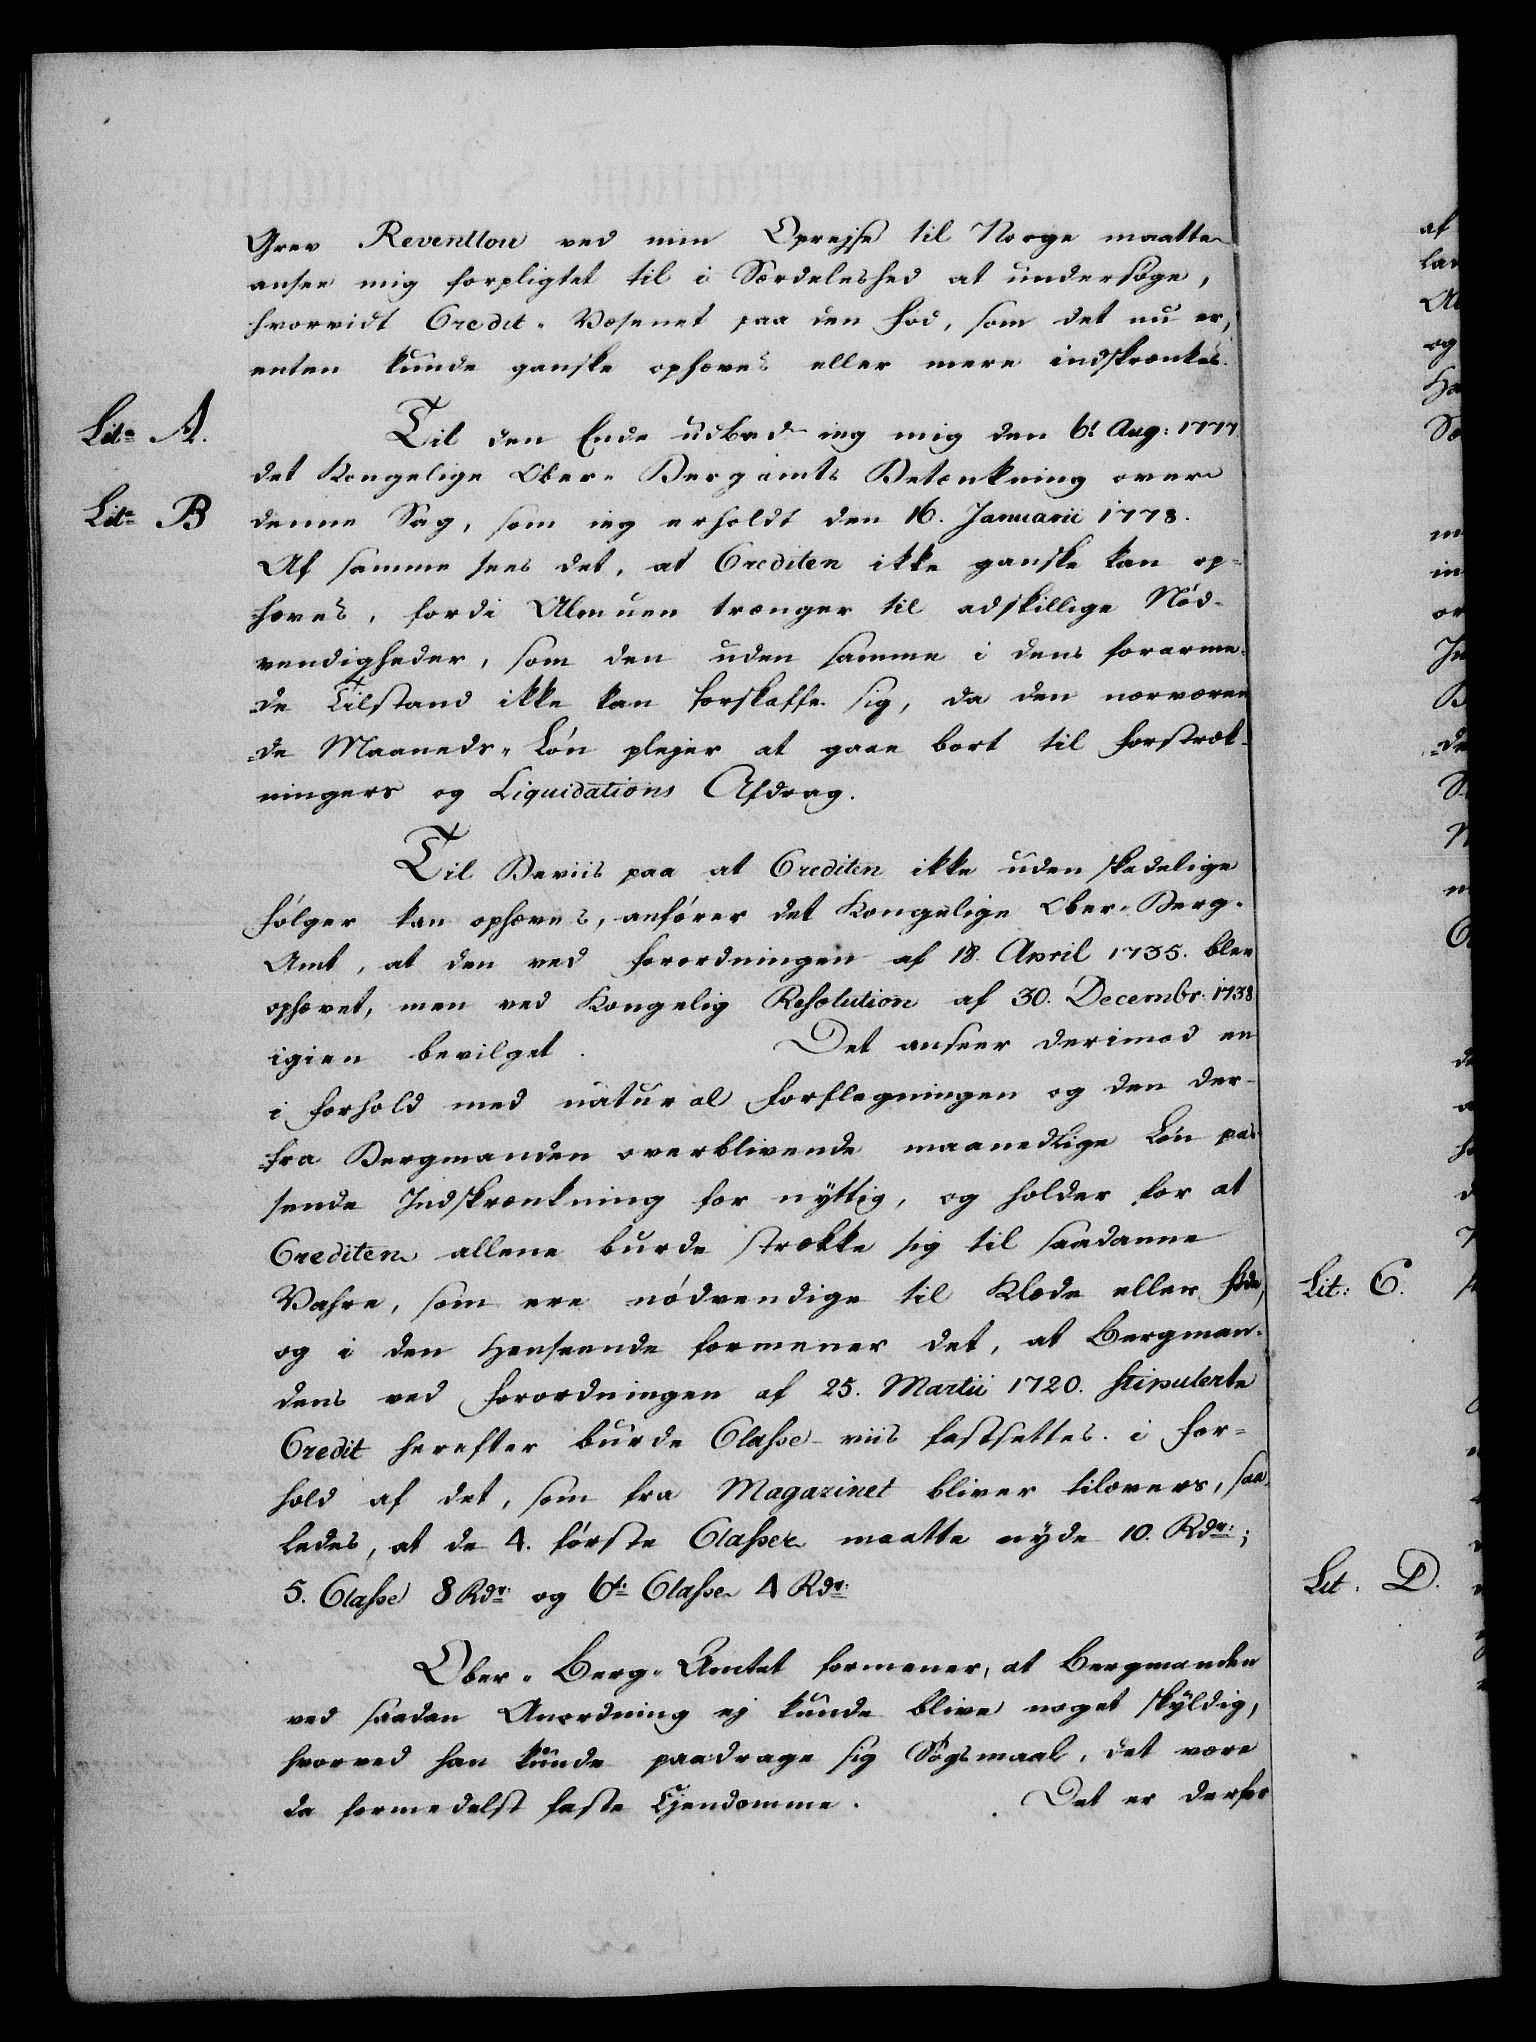 Grev Reventlou ved min Oprejse til Norge maatte
ansee mig forpligtet til i Særdeleshed at undersøge,
hvorvidt Credit-Væsenet paa den Fod, som det nu er,
enten kunde ganske ophæves eller mere indskrænkes.
Lit: A. Til den Ende udbad ieg mig den 6t Aug: 1777
det Kongelige Ober-Bergamts Betænkning over
Lit: B denne Sag, som ieg erholdt den 16. Januarii 1778.
Af samme sees det, at Crediten ikke ganske kan op-
hæves, fordi Almuen trænger til adskillige Nød-
vendigheder, som den uden samme i dens forarme-
de Tilstand ikke kan forskaffe sig, da den nærværen
-de Maaneds-Løn plejer at gaae bort til Forstræk-
ningers og Liquidations Afdrag.
Til Beviis paa at Crediten ikke uden skadelige
Følger kan ophæves, anfører det Kongelige Ober-Berg-
Amt, at den ved Forordningen af 18. April 1735. blev
ophævet, men ved Kongelig Resolution af 30. Decembr: 1738
igien bevilget. Det anseer derimod en
i Forhold med natural Forflegningen og den der-
fra Bergmanden overblivende maanedlige Løn pas-
sende Indskrænkning for nyttig, og holder for at
Crediten allene burde strække sig til saadanne
Vahre, som ere nødvendige til Klæde eller Føde,
og i den Henseende formener det, at Bergman-
dens ved Forordningen af 25. Martii 1720. stipulerte
Credit herefter burde Classe-viis fastsettes i For-
hold af det, som fra Magazinet bliver tilovers, saa-
ledes, at de 4. første Classer maatte nyde 10. Rdr:;
5. Classe 8 Rdr: og 6t: Classe 4 Rdr:
Ober-Berg-Amtet formener, at Bergmanden
ved saadan Anordning ej kunde blive noget skyldig,
hvorved han kunde paadrage sig Søgsmaal, det være
da formedelst faste Ejendomme. Det er derfor
Lit: C.
Lit: D.